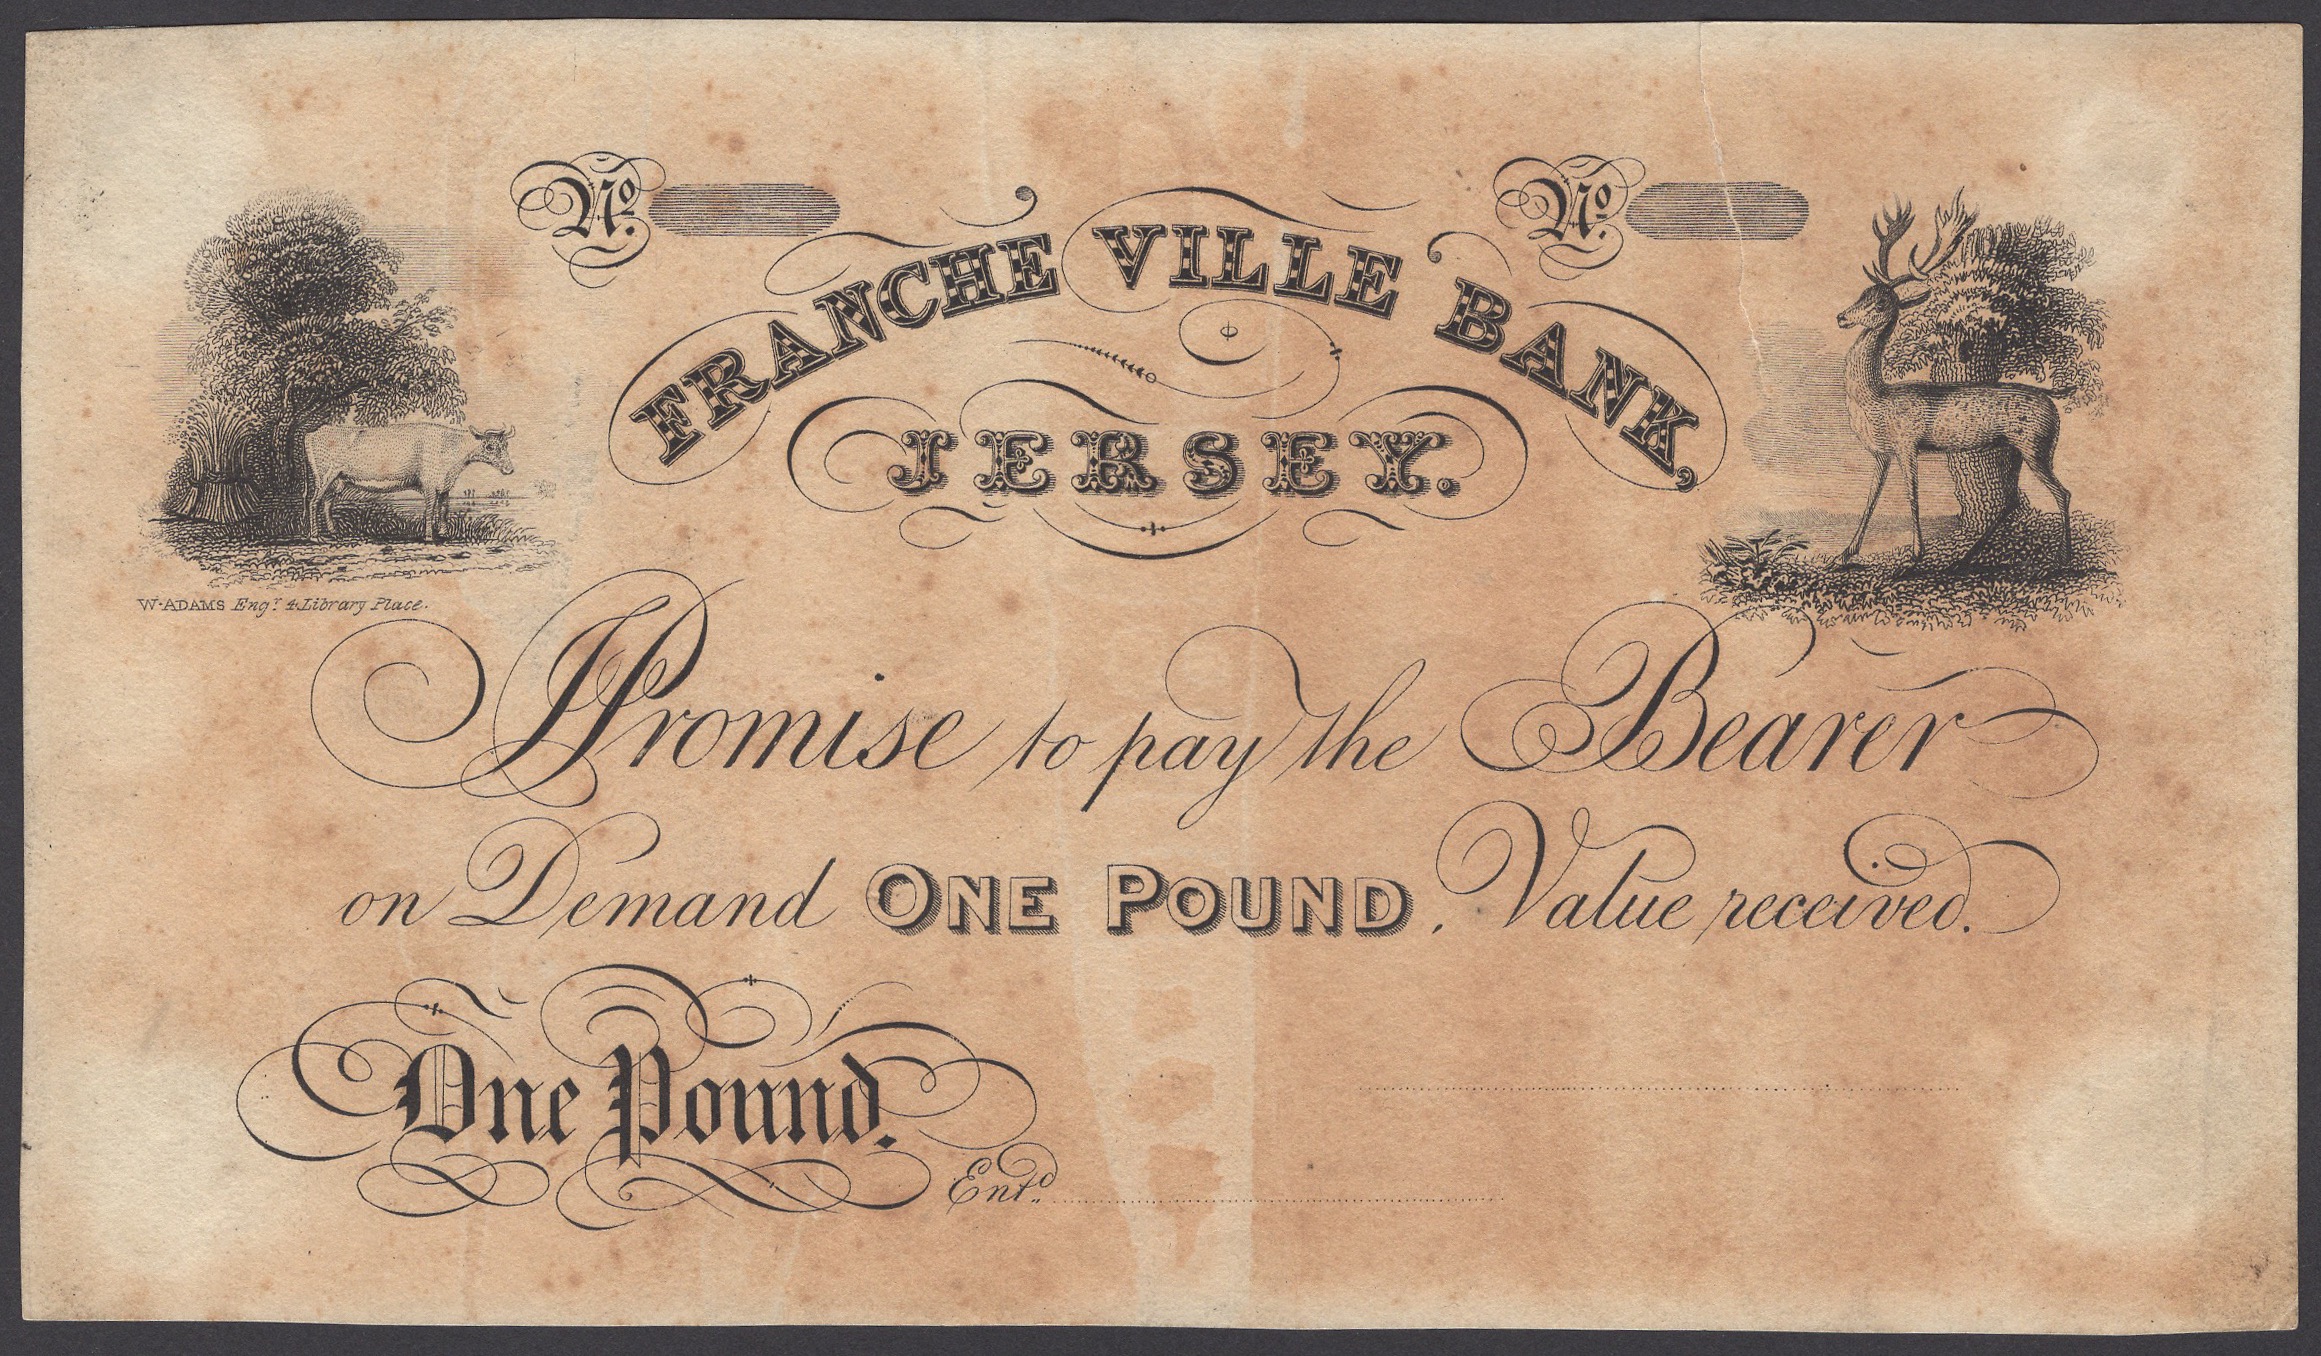 No.
No.
FRANCHE VILLE BANK,
JERSEY.
W. ADAMS Engr. 4 Library Place.
I Promise to pay the Bearer
on Demand ONE POUND, Value received.
One Pound.
Entd.